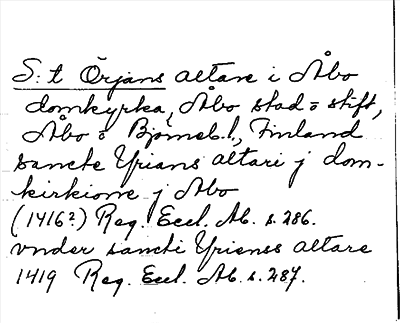 S:t Örjans altare i Åbo
domkyrka, Åbo stad o stift,
Åbo o Björneb. l., Finland
sancte Yrians altari j dom-
kirkione j Abo
(1416?) Reg. Eccl. Ab. s. 286.
vnder sancti Yrienss altare
1419 Reg. Eccl. Ab. s. 287.